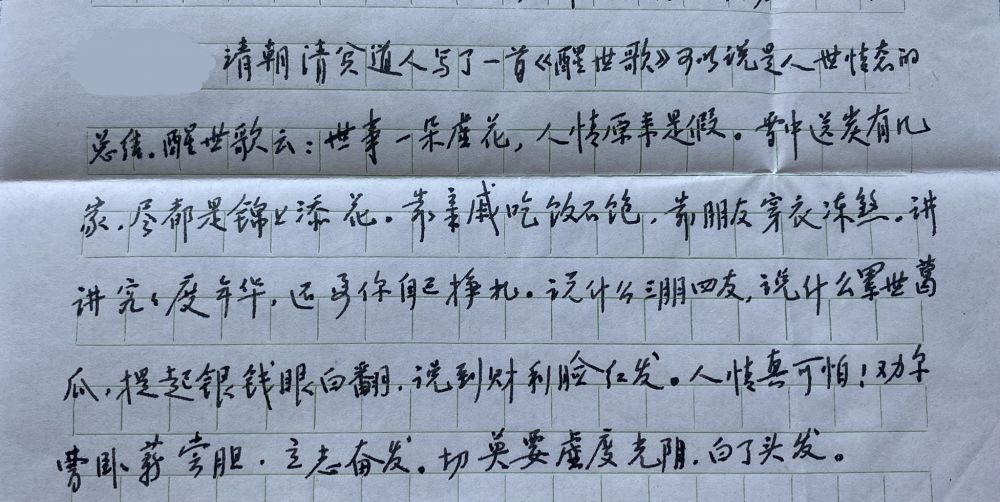 清朝清贫道人写了一首《醒世歌》可以说是人世情态的
总结。醒世歌云：世事一朵虚花，人情原来是假。雪中送炭有几
家，尽都是锦上添花。靠亲戚吃饭不饱，靠朋友穿衣冻煞。讲
讲究々度年华，还要你自己挣扎。说什么三朋四友，说什么累世葛
瓜，提起银钱眼白翻，说到财利脸红发。人情真可怕！劝尔
曹卧薪尝胆，立志奋发。切莫要虚度光阴，白了头发。